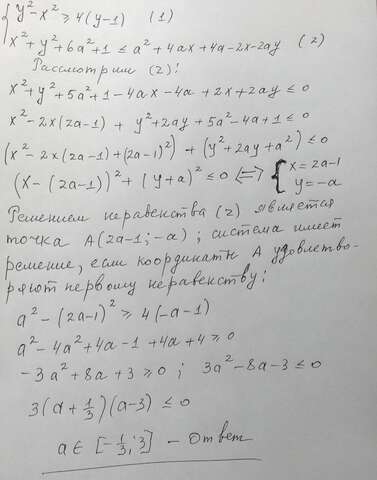 { y² - x² ⩾ 4(y-1) (1)
x² + y² + 6a² + 1 ≤ a² + 4ax + 4a - 2x - 2ay (2)
Рассмотрим (2):
x² + y² + 5a² + 1 - 4ax - 4a + 2x + 2ay ≤ 0
x² - 2x(2a-1) + y² + 2ay + 5a² - 4a + 1 ≤ 0
(x² - 2x(2a-1) + (2a-1)²) + (y² + 2ay + a²) ≤ 0
(x - (2a-1))² + (y+a)² ≤ 0 ⟺ { x = 2a-1
y = -a
Решением неравенства (2) является
точка A(2a-1; -a); система имеет
решение, если координаты A удовлетво-
ряют первому неравенству:
a² - (2a-1)² ⩾ 4(-a-1)
a² - 4a² + 4a - 1 + 4a + 4 ⩾ 0
-3a² + 8a + 3 ⩾ 0 ; 3a² - 8a - 3 ≤ 0
3(a + 1/3)(a-3) ≤ 0
a ∈ [-1/3; 3] - Ответ